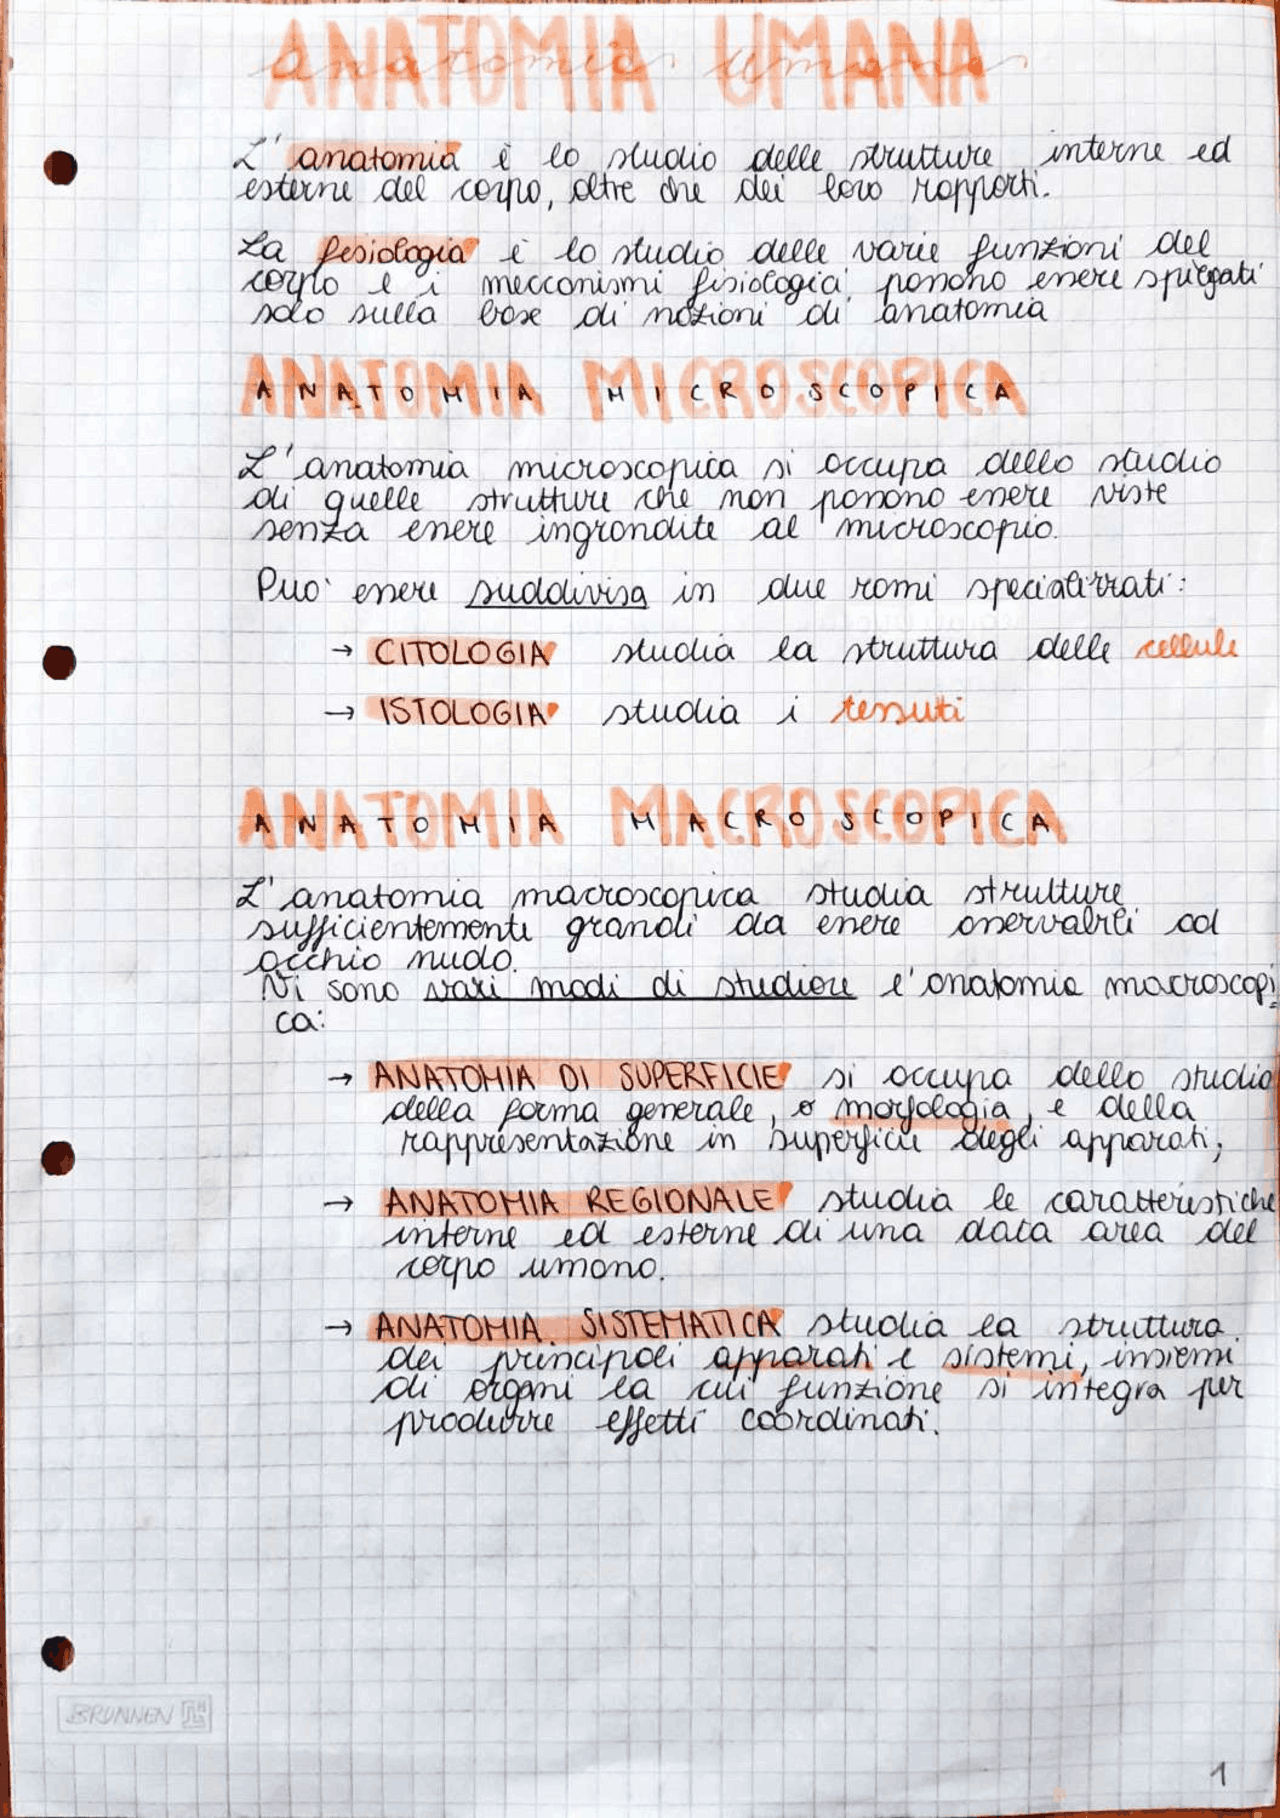 ANATOMIA UMANA
anatomia umana
L'anatomia è lo studio delle strutture interne ed
esterne del corpo, oltre che dei loro rapporti.
La fisiologia è lo studio delle varie funzioni del
corpo e i meccanismi fisiologici possono essere spiegati
solo sulla base di nozioni di anatomia
ANATOMIA MICROSCOPICA
L'anatomia microscopica si occupa dello studio
di quelle strutture che non possono essere viste
senza essere ingrandite al microscopio.
Può essere suddivisa in due rami specializzati:
→ CITOLOGIA studia la struttura delle cellule
→ ISTOLOGIA studia i tessuti
ANATOMIA MACROSCOPICA
L'anatomia macroscopica studia strutture
sufficientemente grandi da essere osservabili ad
occhio nudo.
Vi sono vari modi di studiare l'anatomia macroscopi
ca:
→ ANATOMIA DI SUPERFICIE si occupa dello studio
della forma generale, o morfologia, e della
rappresentazione in superficie degli apparati;
→ ANATOMIA REGIONALE studia le caratteristiche
interne ed esterne di una data area del
corpo umano.
→ ANATOMIA SISTEMATICA studia la struttura
dei principali apparati e sistemi, insiemi
di organi la cui funzione si integra per
produrre effetti coordinati.
BRUNNEN
1